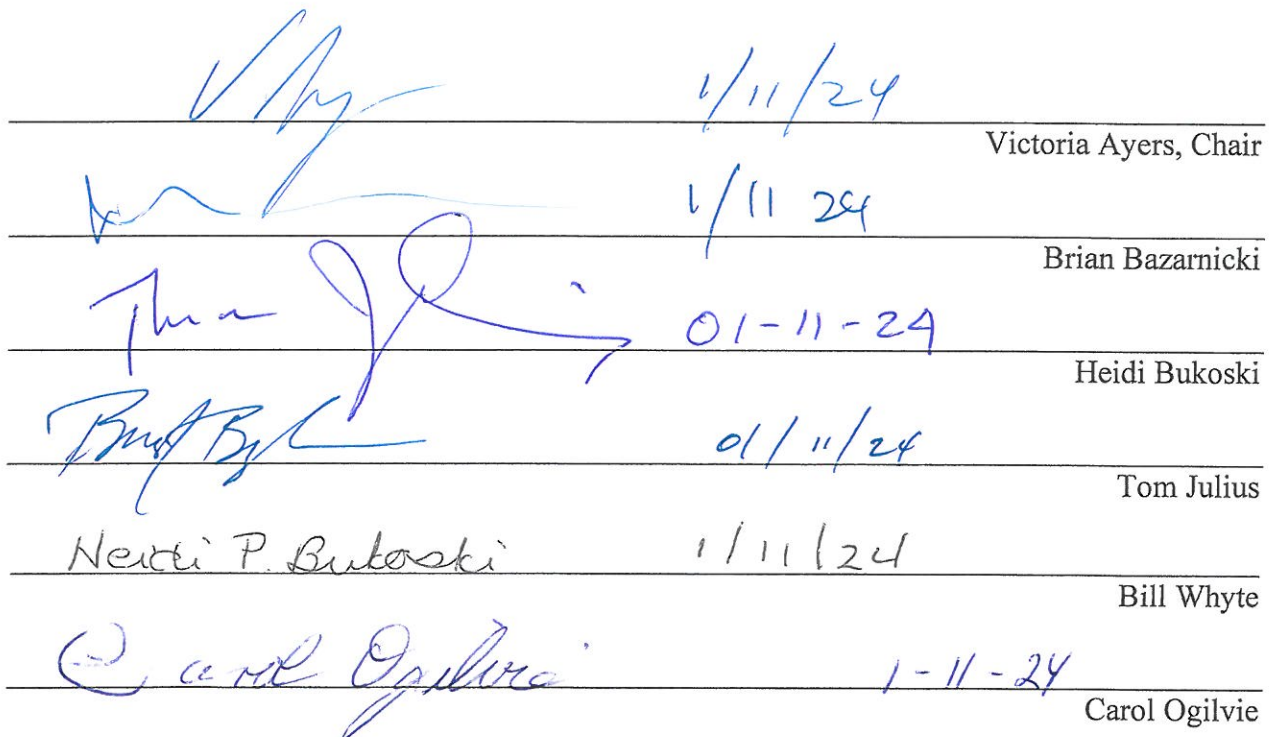 1/11/24
Victoria Ayers, Chair
1/11 24
Brian Bazarnicki
01-11-24
Heidi Bukoski
01/11/24
Tom Julius
Heidi P. Bukoski 1/11/24
Bill Whyte
Carol Ogilvie 1-11-24
Carol Ogilvie